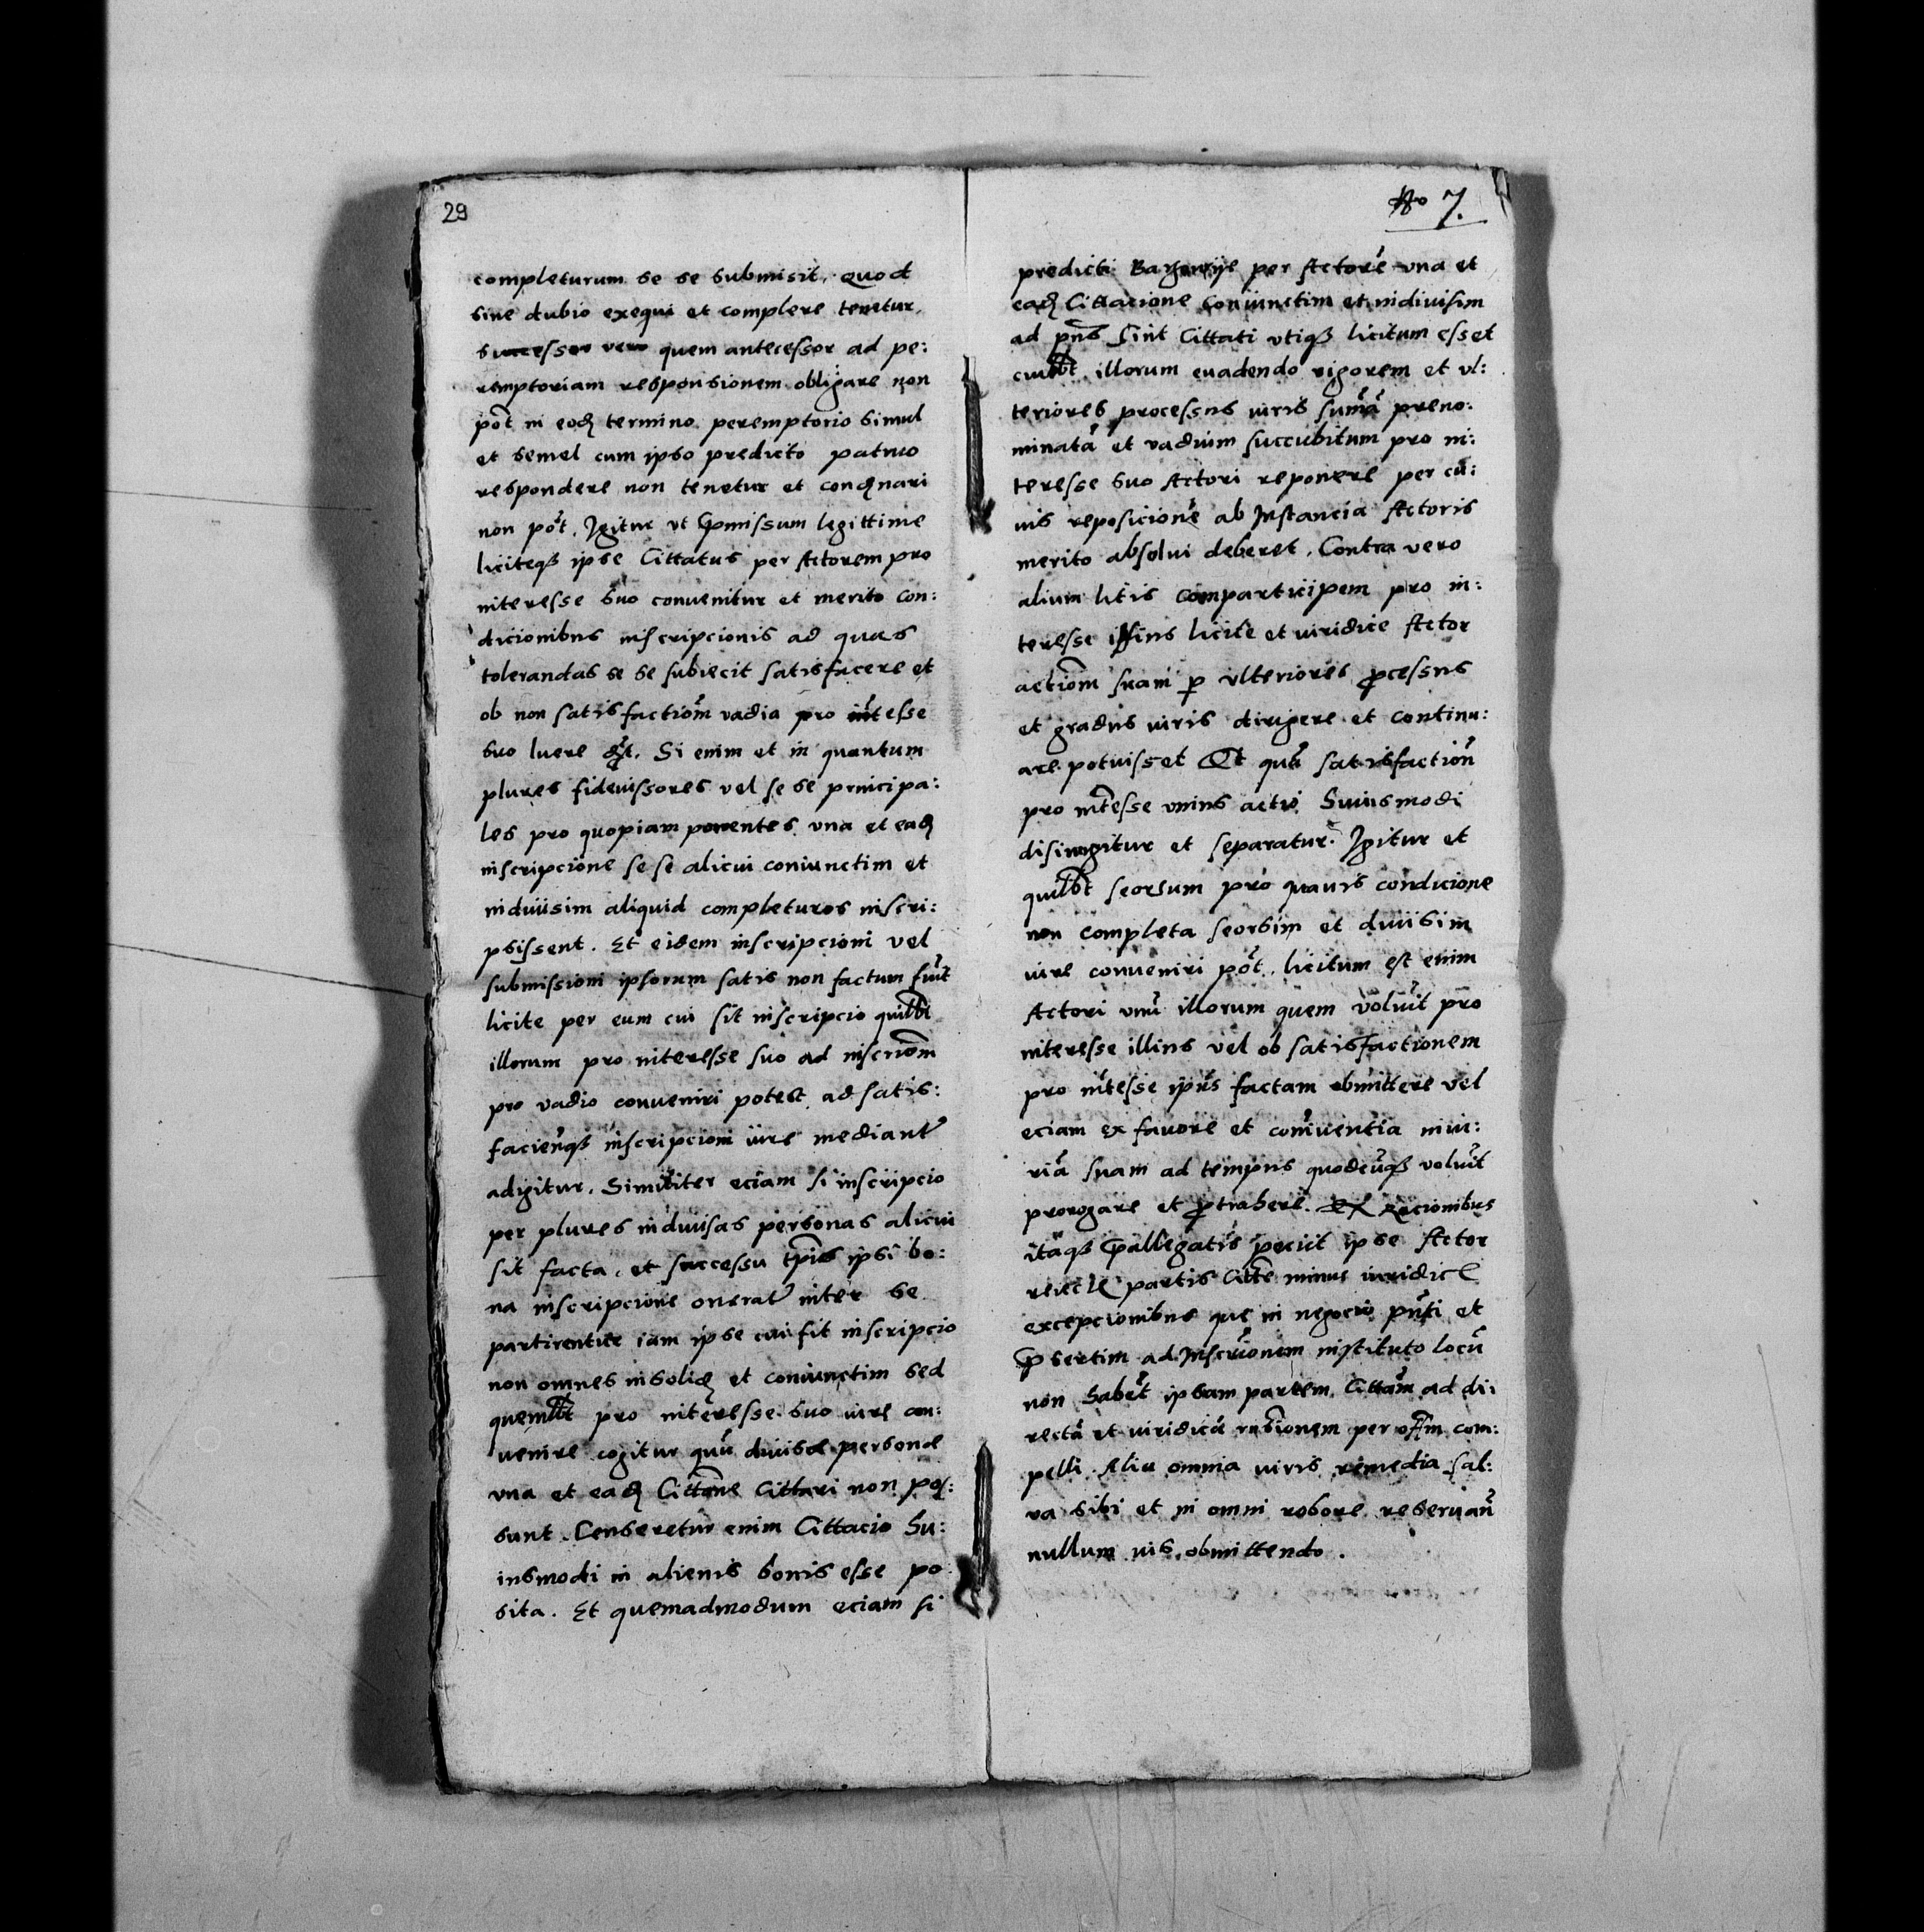 29
completurum se se submisit. quod
sine dubio exequi et complere tenetur.
successor vero quem antecessor ad pe:
remptoriam responsionem obligare non
pōt in eodꝫ termino peremptorio simul
et semel cum ipso predicto patruo
respondere non tenetur et condꝫnari
non pōt. Igitur vt p̄missum legittime
liciteqꝫ ipse Cittatus per Actorem pro
interesse suo convenitur et merito con:
dicionibus inscripcionis ad quas
tolerandas se se subiecit satisfacere et
ob non satisfactiōm vadia pro int̄esse
suo luere . Si enim et in quantum
plures fideiussores vel se se principa:
les pro quopiam ponentes vna et eadꝫ
inscripcione se se alicui coniunctim et
indiuisim aliquid completuros inscri:
psissent. Et eidem inscripcioni vel
submissioni ipsorum satis non factum fuit̄
licite per eum cui sit inscripcio quilibt̄
illorum pro interesse suo ad inscriōm
pro vadio conueniri potest ad satis:
facienqꝫ inscripcioni iure mediant̄
adigitur. Similiter eciam si inscripcio
per plures indiuisas personas alicui
sit facta. et successu tp̄is ipsi bo:
na inscripcione onerat̄ inter se
partirentur iam ipse cui fit inscripcio
non omnes insolidꝫ et coniunctim sed
quemlibt̄ pro interesse suo iure con:
venire cogitur quū diuise persone
vna et eadꝫ Cittōne Cittari non pos:
sunt. Censeretur enim Cittacio hu:
iusmodi in alienis bonis esse po
sita. Et quemadmodum eciam si
No 7.
predicti per Actorē vna et
eadꝫ Cittacione coniunctim et indiuisim
ad pn̄s sint Cittati vtiqꝫ licitum esset
cuilibt̄ illorum euadendo rigorem et vl:
teriores processus iuris sum̄ā preno:
minatā et vadium succubitum pro in:
teresse suo Actori reponere per cu:
ius reposicionē ab Instancia Actoris
merito absolui deberet. Contra vero
alium litis comparticipem pro in:
teresse ipsius licite et iuridice Actor
actiōm suam ꝑ vlteriores ꝓcessus
et gradus iuris dirigere et continu:
are potuisset Et quū satisfaction̄
pro int̄esse vnius actio huiusmodi
disiungitur et separatur. Igitur et
quilibt̄ seorsum pro quauis condicione
non completa seorsim et diuisim
iure conueniri pōt. licitum est enim
Actori vnū illorum quem voluit̄ pro
interesse illius vel ob satisfactionem
pro int̄esse ipīus factam obmittere vel
eciam ex fauore et coniuentia iniu:
riā suam ad tempus quodcūqꝫ voluit̄
prorogare et ꝓtrahere. Ex racionibus
itaqꝫ p̄allegatis petiit ipse Actor
reiectꝭ partis Citte minus iuridicꝭ
excepcionibus que in negocio pn̄ti et
p̄sertim ad Inscrīonem instituto locū
non habet̄ ipsam partem Cittām ad di:
rectā et iuridicā rn̄sionem per com:
pelli Alia omnia iuris remedia sal:
va sibi et in omni robore reseruan̄
nullum ius obmittendo.